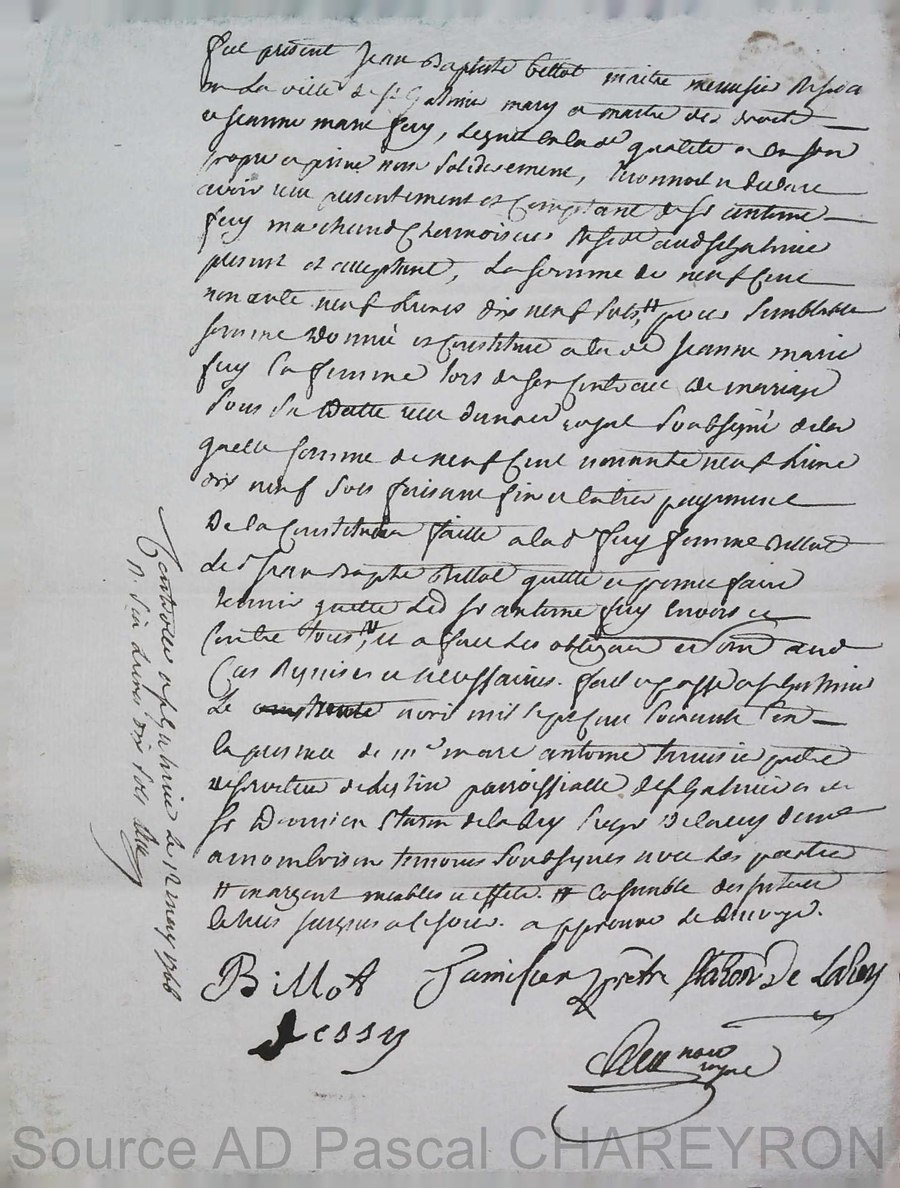 fut présent Jean Baptiste Billot maitre menusier
en La ville de St Galmie mary et maitre des droits
de Jeanne marie fessy, lequel en lad qualité en son
propre et privé nom solidairement, reconnoit et declare
avoir reçu presentement et Comptant de Sr antoine
fessy marchand Chamoiseur Resid audt St galmie
present et acceptant, La somme de neuf Cent
nonante neuf Livres dix neuf sols, ++ pour semblable
somme donnée et Constituée a lad Jeanne marie
fessy sa femme lors de son Contract de mariage
sous sa datte reçu du notaire royal soubsigné de la
quelle somme de neuf Cent nonante neuf Livres
dix neuf sols faisant fin et entier payement
De la Constitution faitte a lad fessy femme Billot
led Sr Jean Baptte Billot quitte et promet faire
tenir quitte Led Sr antoine fessy envers et
contre tous, et a fait Les obligations
Cas Requises et necessaires. fait et passé a St Galmie
Le avril mil sept cent soixante six en
la presence de me marc antoine prêtre
desserviteur de Leglise parroissialle de St Galmier et de
Sr Staron de Larey
temoins soubsignés avec Les parties
++ en argent meubles et effets. ++
a approuvé
Billot prêtre Staron De LaRey
fessy
nore
royal
Controllé a St Galmie Le 12 may 1766
R. six Livres dix sols
Source AD Pascal CHAREYRON